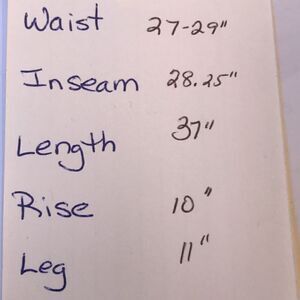 Waist 27-29"
Inseam 28.25"
Length 37"
Rise 10"
Leg 11"